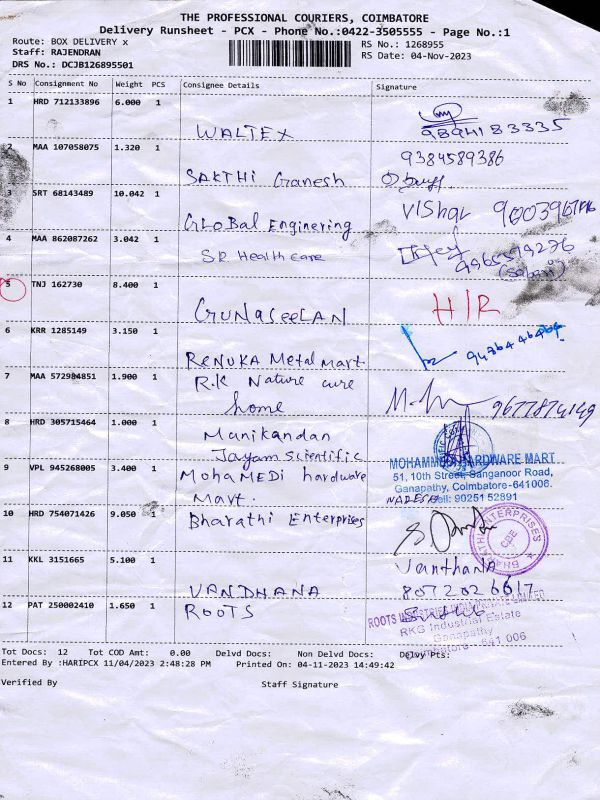 THE PROFESSIONAL COURIERS, COIMBATORE
Delivery Runsheet - PCX - Phone No.:0422-3505555 - Page No.:1
Route: BOX DELIVERY x
RS No.: 1268955
Staff: RAJENDRAN
RS Date: 04-Nov-2023
DRS No.: DCJB126895501
S No Consignment No Weight PCS Consignee Details Signature
1 HRD 712133896 6.000 1
WALTEX 9894183335
2 MAA 107058075 1.320 1 9384589386
SAKTHi Ganesh
3 SRT 68143489 10.042 1 VISHAL
GLoBal Enginering
4 MAA 862087262 3.042 1
SR Health care 9965599276
5 TNJ 162730 8.400 1 H/R
GUNaSeeLAN
6 KRR 1285149 3.150 1
RENUKA Metal mart.
7 MAA 572984851 1.900 1 R.K Nature cure
home 9677874149
8 HRD 305715464 1.000 1 Manikandan
Jayam scientific
9 VPL 945268005 3.400 1 MohaMEDi hardware
Mart.
MOHAMMEDI HARDWARE MART
51, 10th Street, Sanganoor Road,
Ganapathy, Coimbatore-641006.
Cell: 90251 52891
10 HRD 754071426 9.050 1 Bharathi Enterprises
BHARATHI ENTERPRISES
CBE
11 KKL 3151665 5.100 1 Vanthana
VANDHANA 8072026617
12 PAT 250002410 1.650 1 ROOTS
ROOTS INDUSTRIES INDIA PRIVATE LIMITED
RKG Industrial Estate
Ganapathy
Coimbatore - 641 006
Tot Docs: 12 Tot COD Amt: 0.00 Delvd Docs: Non Delvd Docs: Delvy Pts:
Entered By :HARIPCX 11/04/2023 2:48:28 PM Printed On: 04-11-2023 14:49:42
Verified By Staff Signature